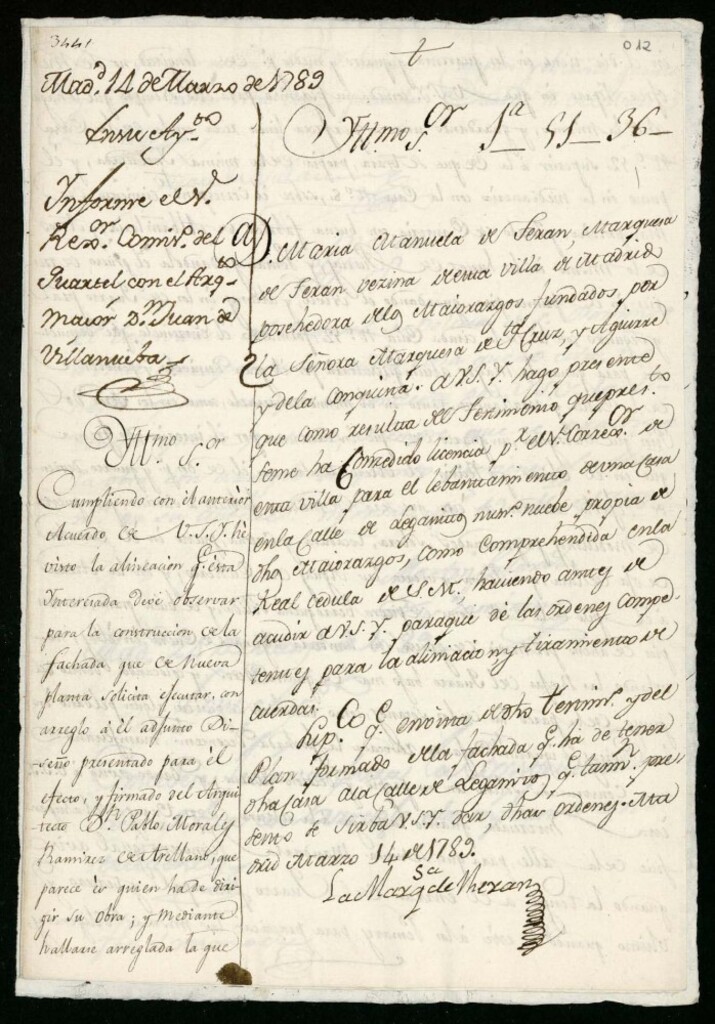 3441
012
+
Mad.d 14 de Marzo de 1789
En su Ay.to
Informe el S.r
Rex.or Comis.o del
Quartel con el Arq.to
maior D.n Juan de
Villanueba
Yttmo S.or
Cumpliendo con el anterior
Acuerdo de V.S.Y. he
visto la alineacion q.e esta
Interesada deve observar
para la construccion de la
fachada que de nueva
planta solicita ejecutar, con
arreglo à el adjunto Di-
seño presentado para el
efecto, y firmado del Arqui-
tecto D.n Pablo Morales
Ramirez de Arellano, que
parece és quien ha de diri-
gir su obra; y mediante
hallarse arreglada la que
Yttmo S.or 1a 51 36
D. Maria Manuela de Teran, Marquesa
de Teran vezina de esta villa de Madrid
posehedora de los Maiorazgos fundados por
la Señora Marquesa de S.ta Cruz, y Aguirre
y de la Conquista. a V.S.Y. hago presente
que como resulta del Testimonio que pres.to
se me ha Comzedido licencia p.r el S.r Correx.or de
esta villa para el lebantamiento de una Casa
en la Calle de Leganitos num.o nuebe propia de
dhos Maiorazgos, como Comprehendida en la
Real Cedula de S.M., haviendo antes de
acudir a V.S.Y. para que de las ordenes Compe-
tentes para la alineacion y tiramiento de
cuerdas.
Sup.co q.e en vista de dho Testim.o y del
Plan formado de la fachada q.e ha de tener
dha Casa a la Calle de Leganitos q.e tamv.n pre-
sento se sirba V.S.Y. dar, dhas ordenes. Ma
drid Marzo 14 de 1789.
La Marq.sa de Theran